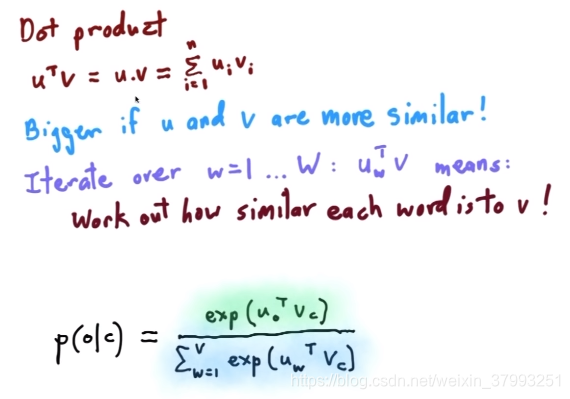 Dot product
uᵀv = u.v = Σⁿᵢ₌₁ uᵢvᵢ
Bigger if u and v are more similar!
Iterate over w=1...W: u_wᵀv means:
Work out how similar each word is to v!
p(o|c) = exp(u₀ᵀv_c) / Σ^V_w=1 exp(u_wᵀv_c)
https://blog.csdn.net/weixin_37993251